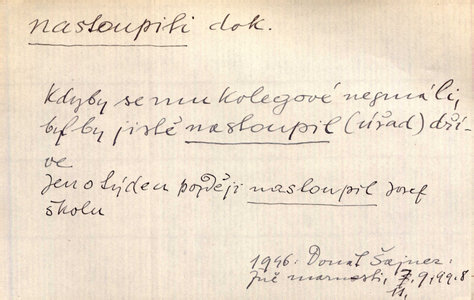 nastoupiti dok.
Kdyby se mu kolegové nesmáli,
byl by jistě nastoupil (úřad) dří-
ve
Jen o týden později nastoupil Josef
školu
1946: Donát Šajner:
Jné marnosti, 7.9,99.8-
11.